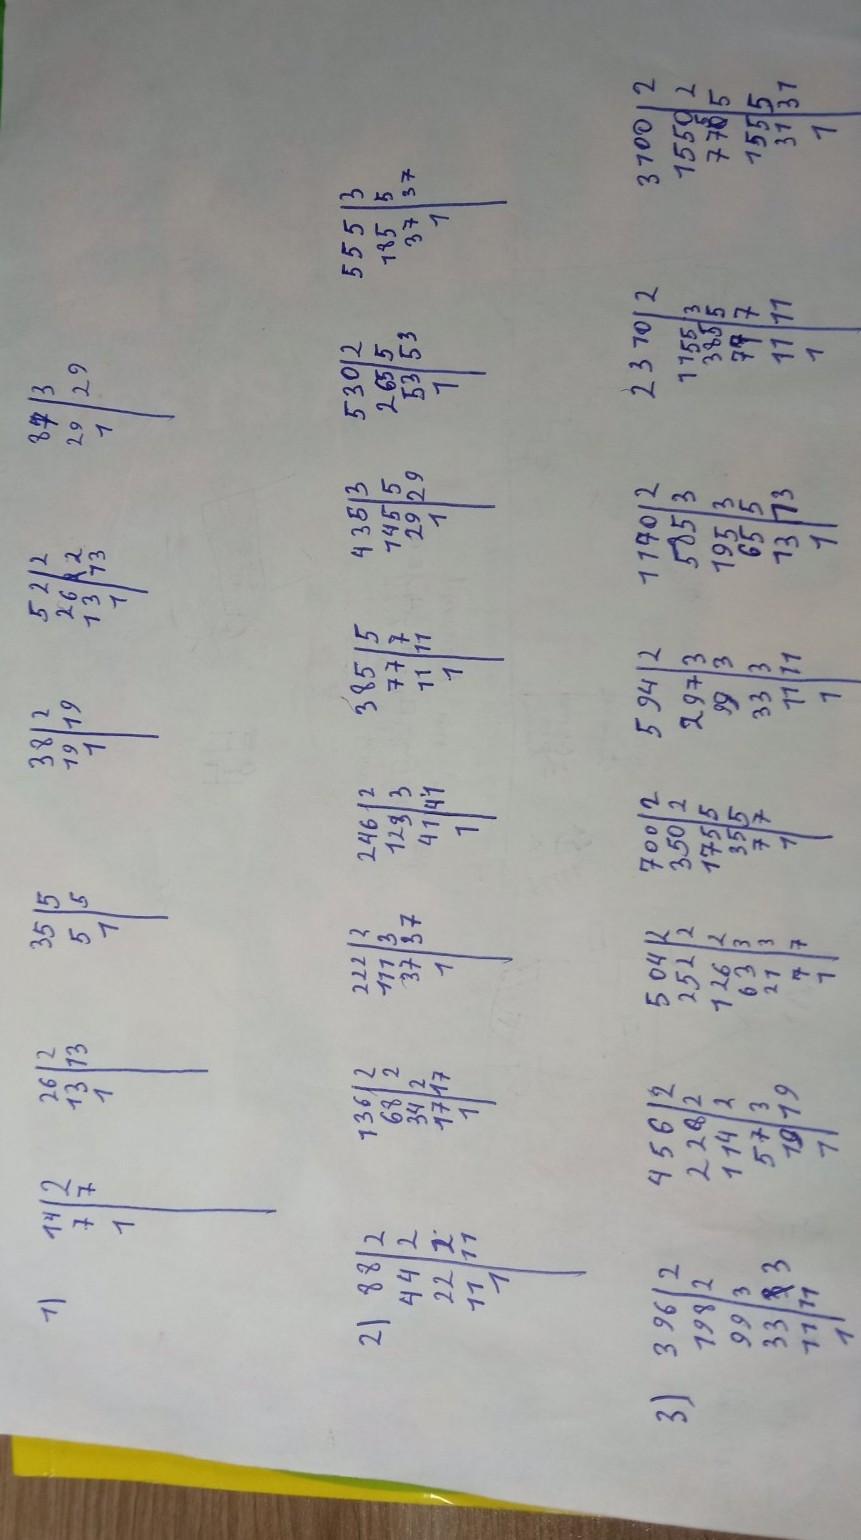 1) 14|2 26|2 35|5 38|2 52|2 87|3
7|7 13|13 5|5 19|19 26|2 29|29
1 1 1 1 13|13 1
1
2) 88|2 136|2 222|2 246|2 385|5 435|3 530|2 555|3
44|2 68|2 111|3 123|3 77|7 145|5 265|5 185|5
22|2 34|2 37|37 41|41 11|11 29|29 53|53 37|37
11|11 17|17 1 1 1 1 1 1
1 1
3) 396|2 456|2 504|2 700|2 594|2 1170|2 2310|2 3100|2
198|2 228|2 252|2 350|2 297|3 585|3 1155|3 1550|2
99|3 114|2 126|2 175|5 99|3 195|3 385|5 775|5
33|3 57|3 63|3 35|5 33|3 65|5 77|7 155|5
11|11 19|19 21|3 7|7 11|11 13|13 11|11 31|31
1 1 7|7 1 1 1 1 1
1